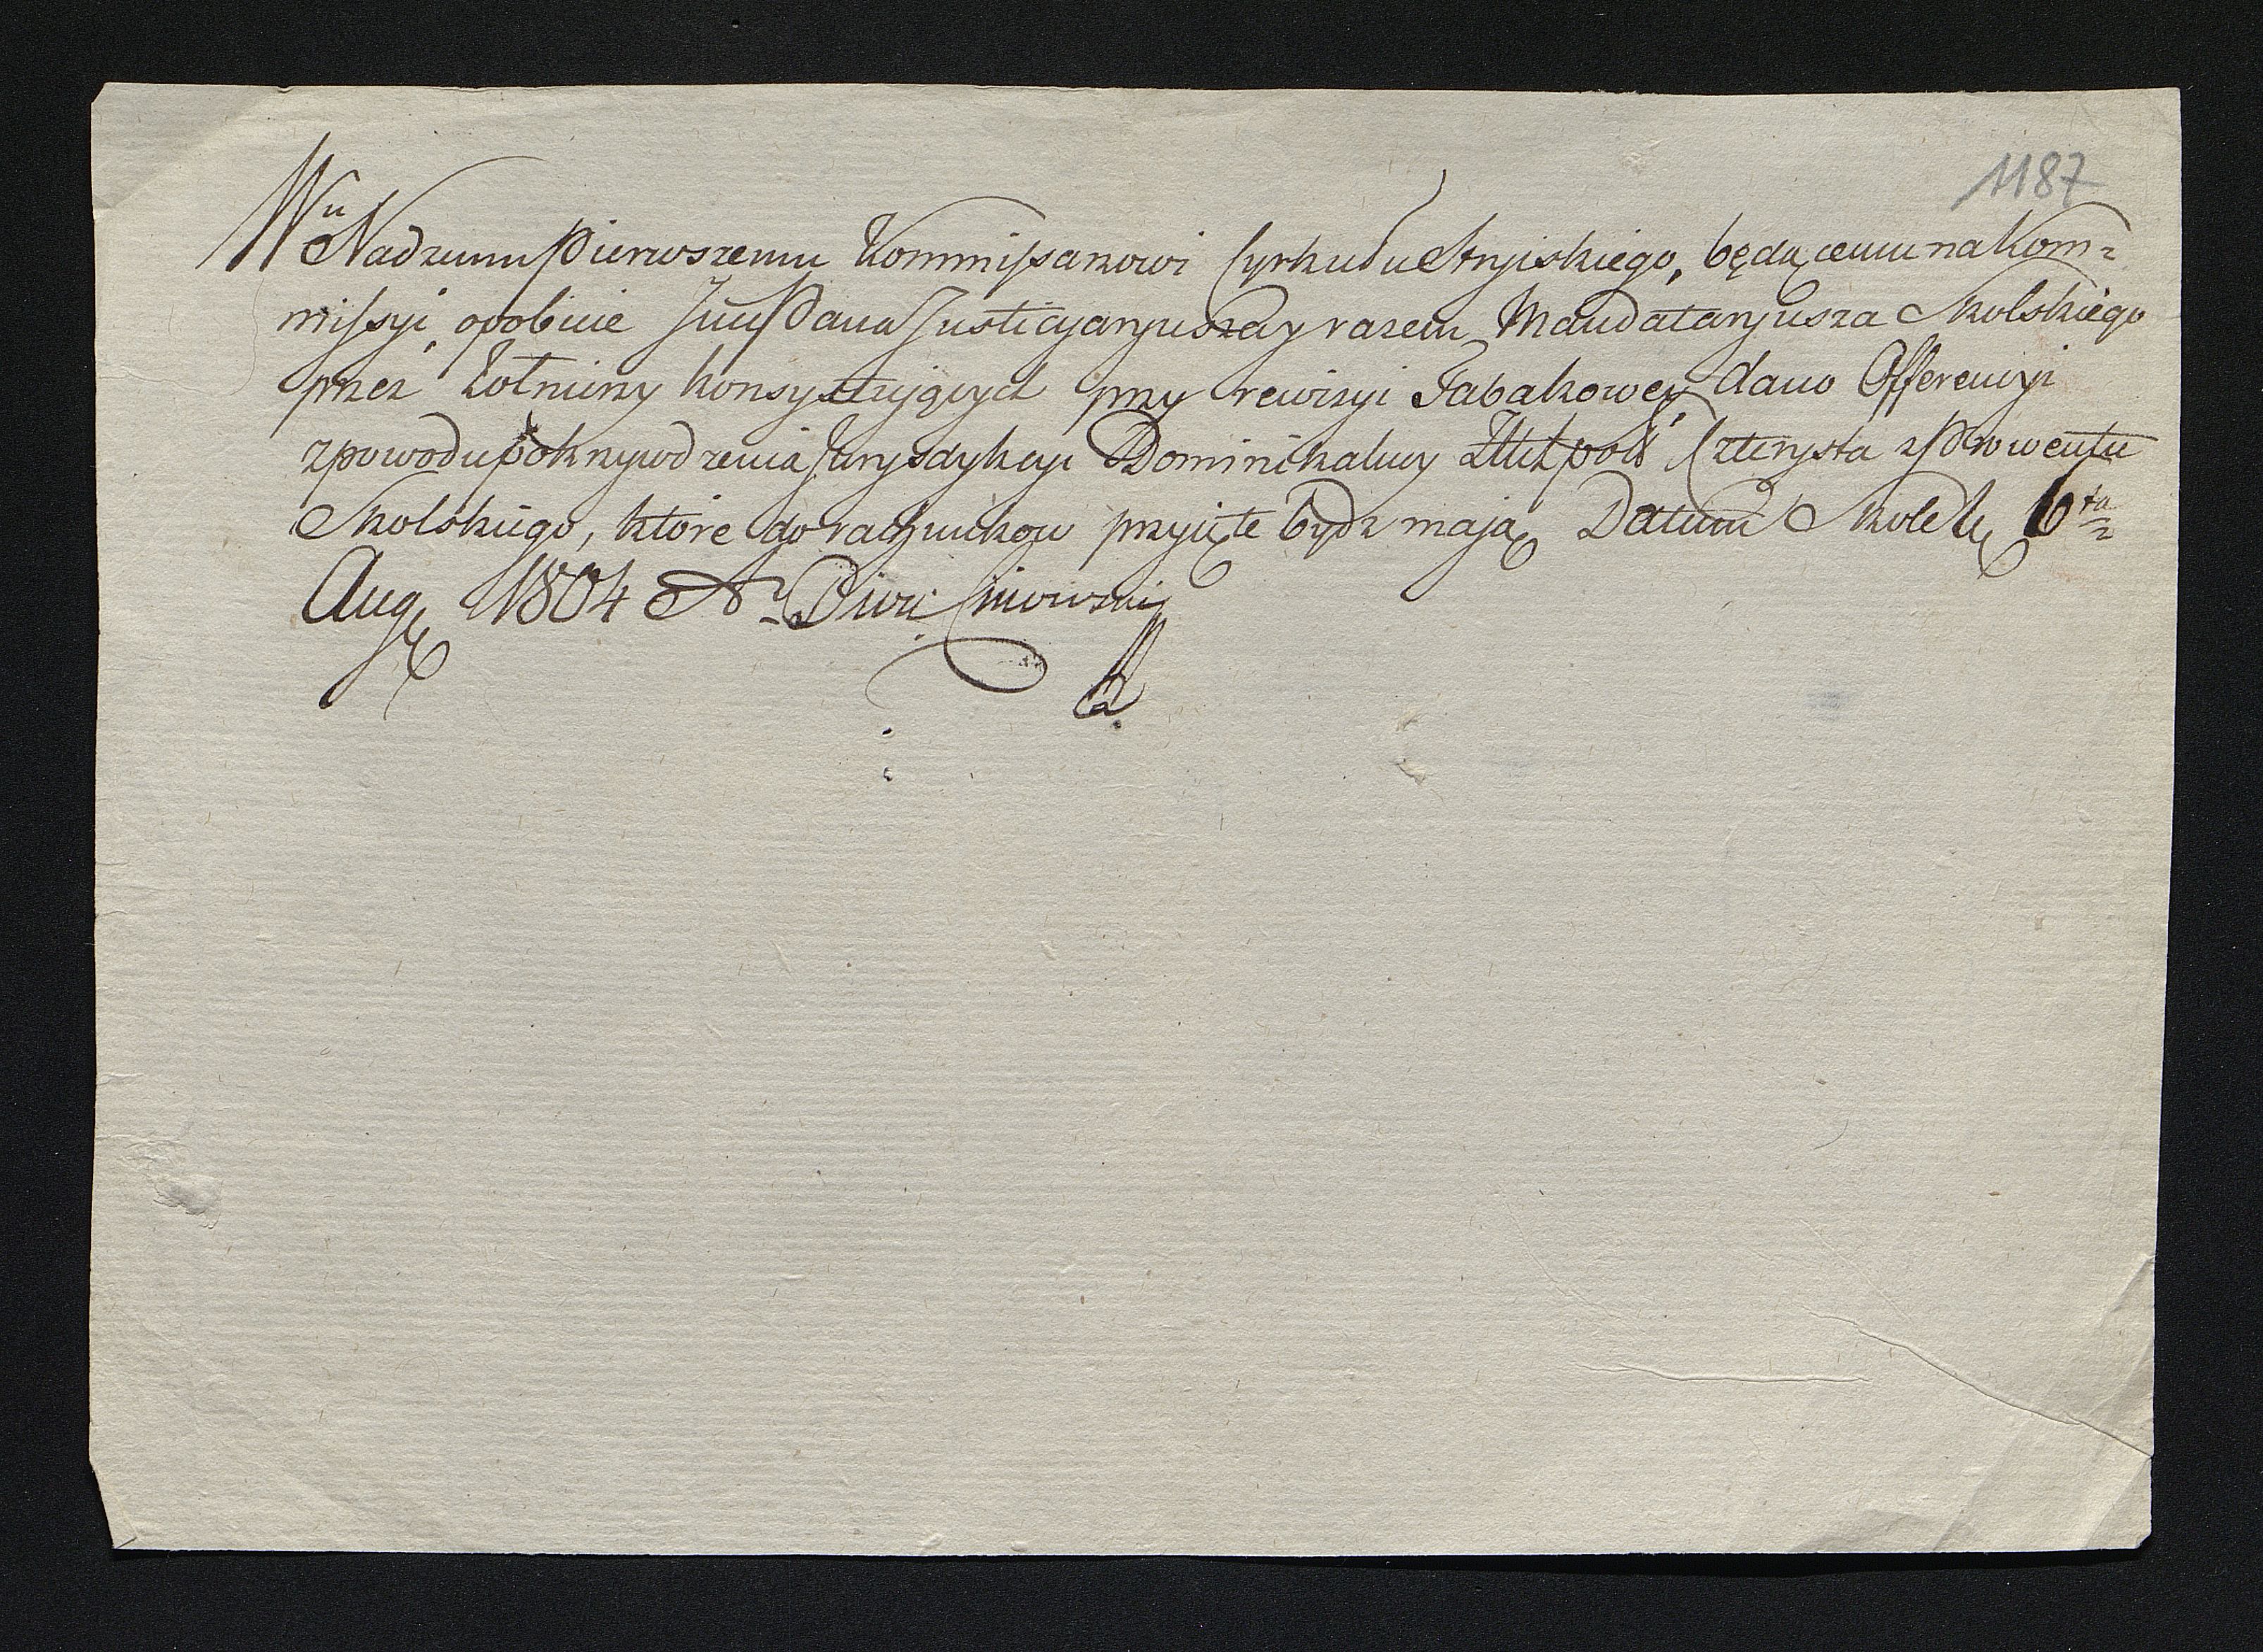 1187
Wu Nadzemu Pierwszemu Kommissarzowi Cyrkułu Stryiskiego, będącemu na Kom=
missyi, o pobicie Jmć Pana Justicyaryusza y razem Mandataryusza Skolskiego
przez Żołnierzy konsystujących przy rewizyi Tabakowey, dano Offerencyi
z powodu pokrzywdzenia Jurysdykcyi Dominikalney Złłt pols Czterysta z Prowentu
Skolskiego, które do rachunkow przyięte bydź mają Datum Skole 6ta
Aug 1804